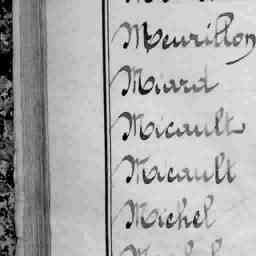 Meurillon
Miard
Micault
Macault
Michel